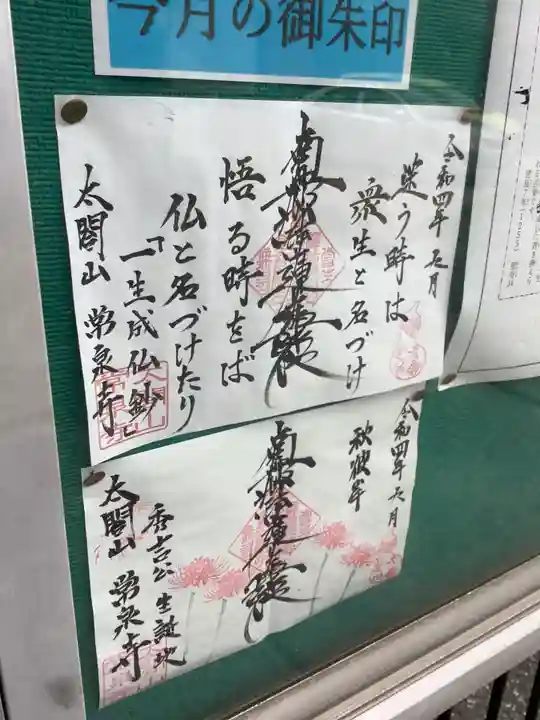 今月の御朱印
令和四年 九月
迷う時は
衆生と名づけ
南無妙法蓮華経
悟る時をば
仏と名づけたり
「一生成仏鈔」
太閤山 常泉寺
令和四年 九月
秋彼岸
南無妙法蓮華経
秀吉公 生誕地
太閤山 常泉寺